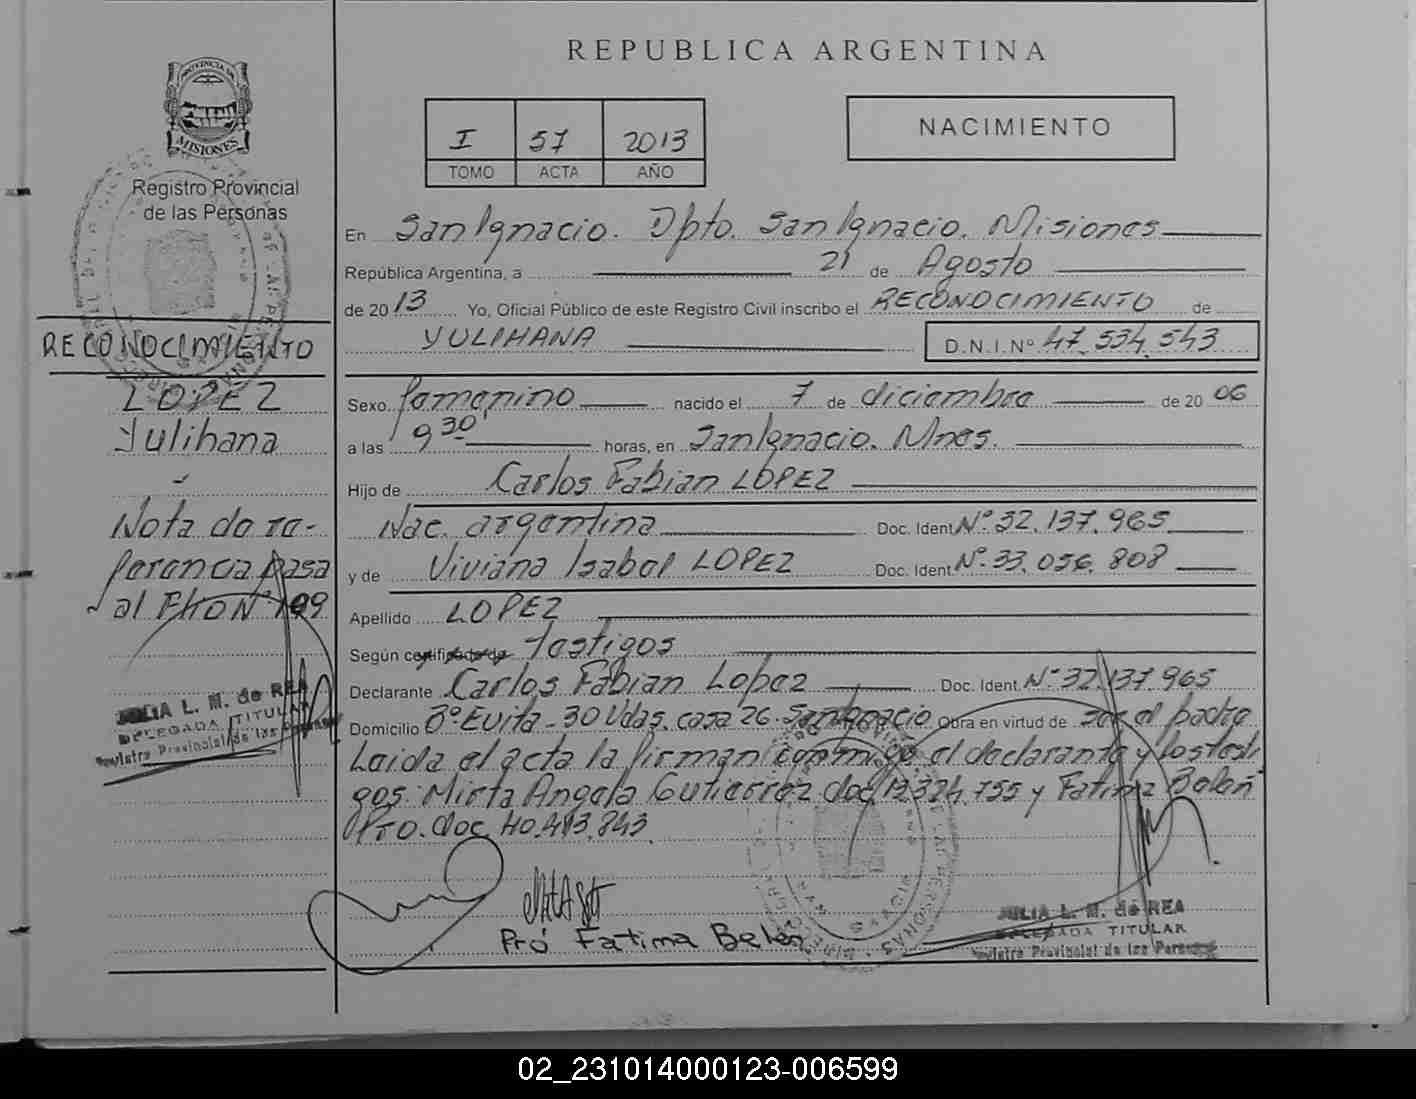 REPUBLICA ARGENTINA
PROVINCIA DE
MISIONES
Registro Provincial
de las Personas
I 57 2013
TOMO ACTA AÑO
NACIMIENTO
En San Ignacio. Dpto. San Ignacio. Misiones
República Argentina, a 21 de Agosto
de 2013 Yo, Oficial Público de este Registro Civil inscribo el RECONOCIMIENTO de
YULIHANA D.N.I. Nº 47.534.543
Sexo femenino nacido el 7 de diciembre de 2006
a las 9 30 horas, en San Ignacio. Mnes.
Hijo de Carlos Fabian LOPEZ
Nac. argentina Doc. Ident Nº 32.137.965
y de Viviana Isabel LOPEZ Doc. Ident Nº 33.056.808
Apellido LOPEZ
Según certificado de testigos
Declarante Carlos Fabian Lopez Doc. Ident. Nº 32.137.965
Domicilio Bº Evita - 30 Vdas. casa 26. San Ignacio Obra en virtud de ser el padre
Leida el acta la firman conmigo el declarante y los testi
gos: Mirta Angela Gutierrez doc. 12.324.755 y Fatima Belen
Pro. doc. 40.413.843
Pró Fatima Belén
JULIA L. M. de REA
DELEGADA TITULAR
Registro Provincial de las Personas
RECONOCIMIENTO
LOPEZ
Yulihana
Nota de re-
ferencia pasa
al Flio Nº 199
JULIA L. M. de REA
DELEGADA TITULAR
Registro Provincial de las Personas
02_231014000123-006599